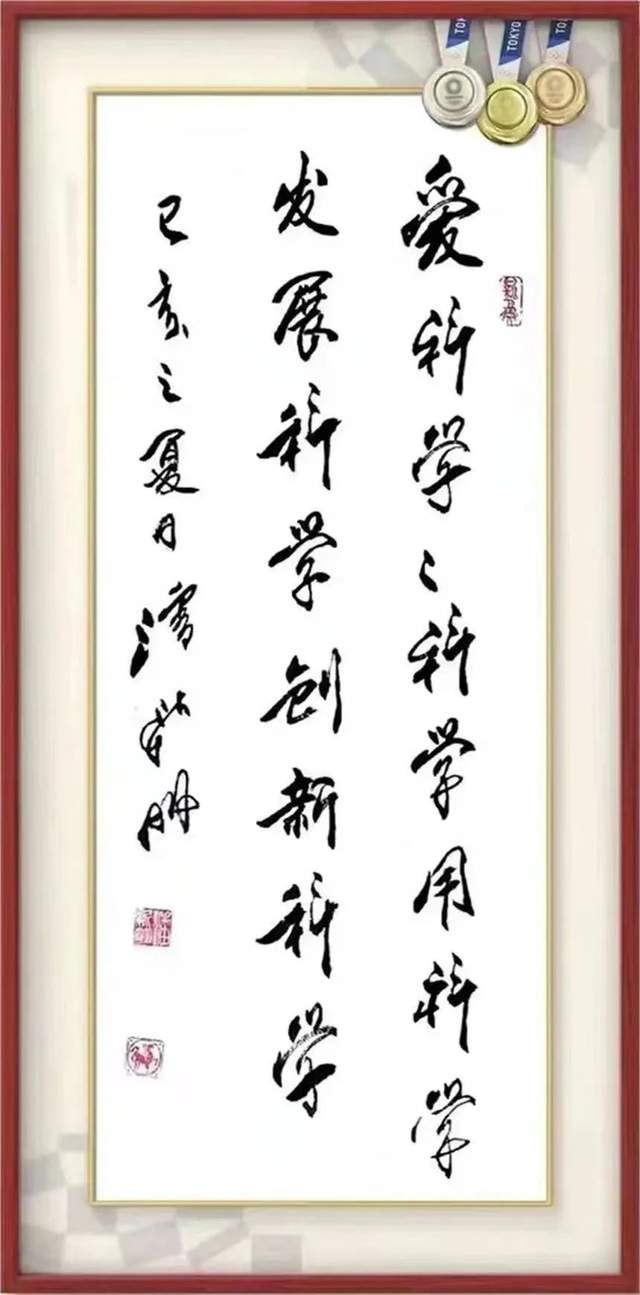 爱科学〻科学用科学
发展科学创新科学
己亥之夏月
TOKYO
TOKYO
TOKYO